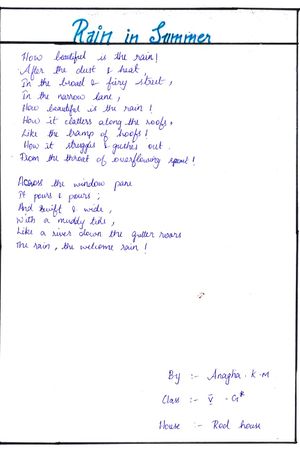 Rain in Summer
How beautiful is the rain!
After the dust & heat,
In the broad & fiery street,
In the narrow lane,
How beautiful is the rain!
How it clatters along the roofs,
Like the tramp of hoofs!
How it struggls & gushes out
From the throat of overflowing spout!
Across the window pane
It pours & pours;
And swift & wide,
With a muddy tide,
Like a river down the gutter roars
The rain, the welcome rain!
By :- Anagha . K . M
Class :- V . G*
House :- Red house